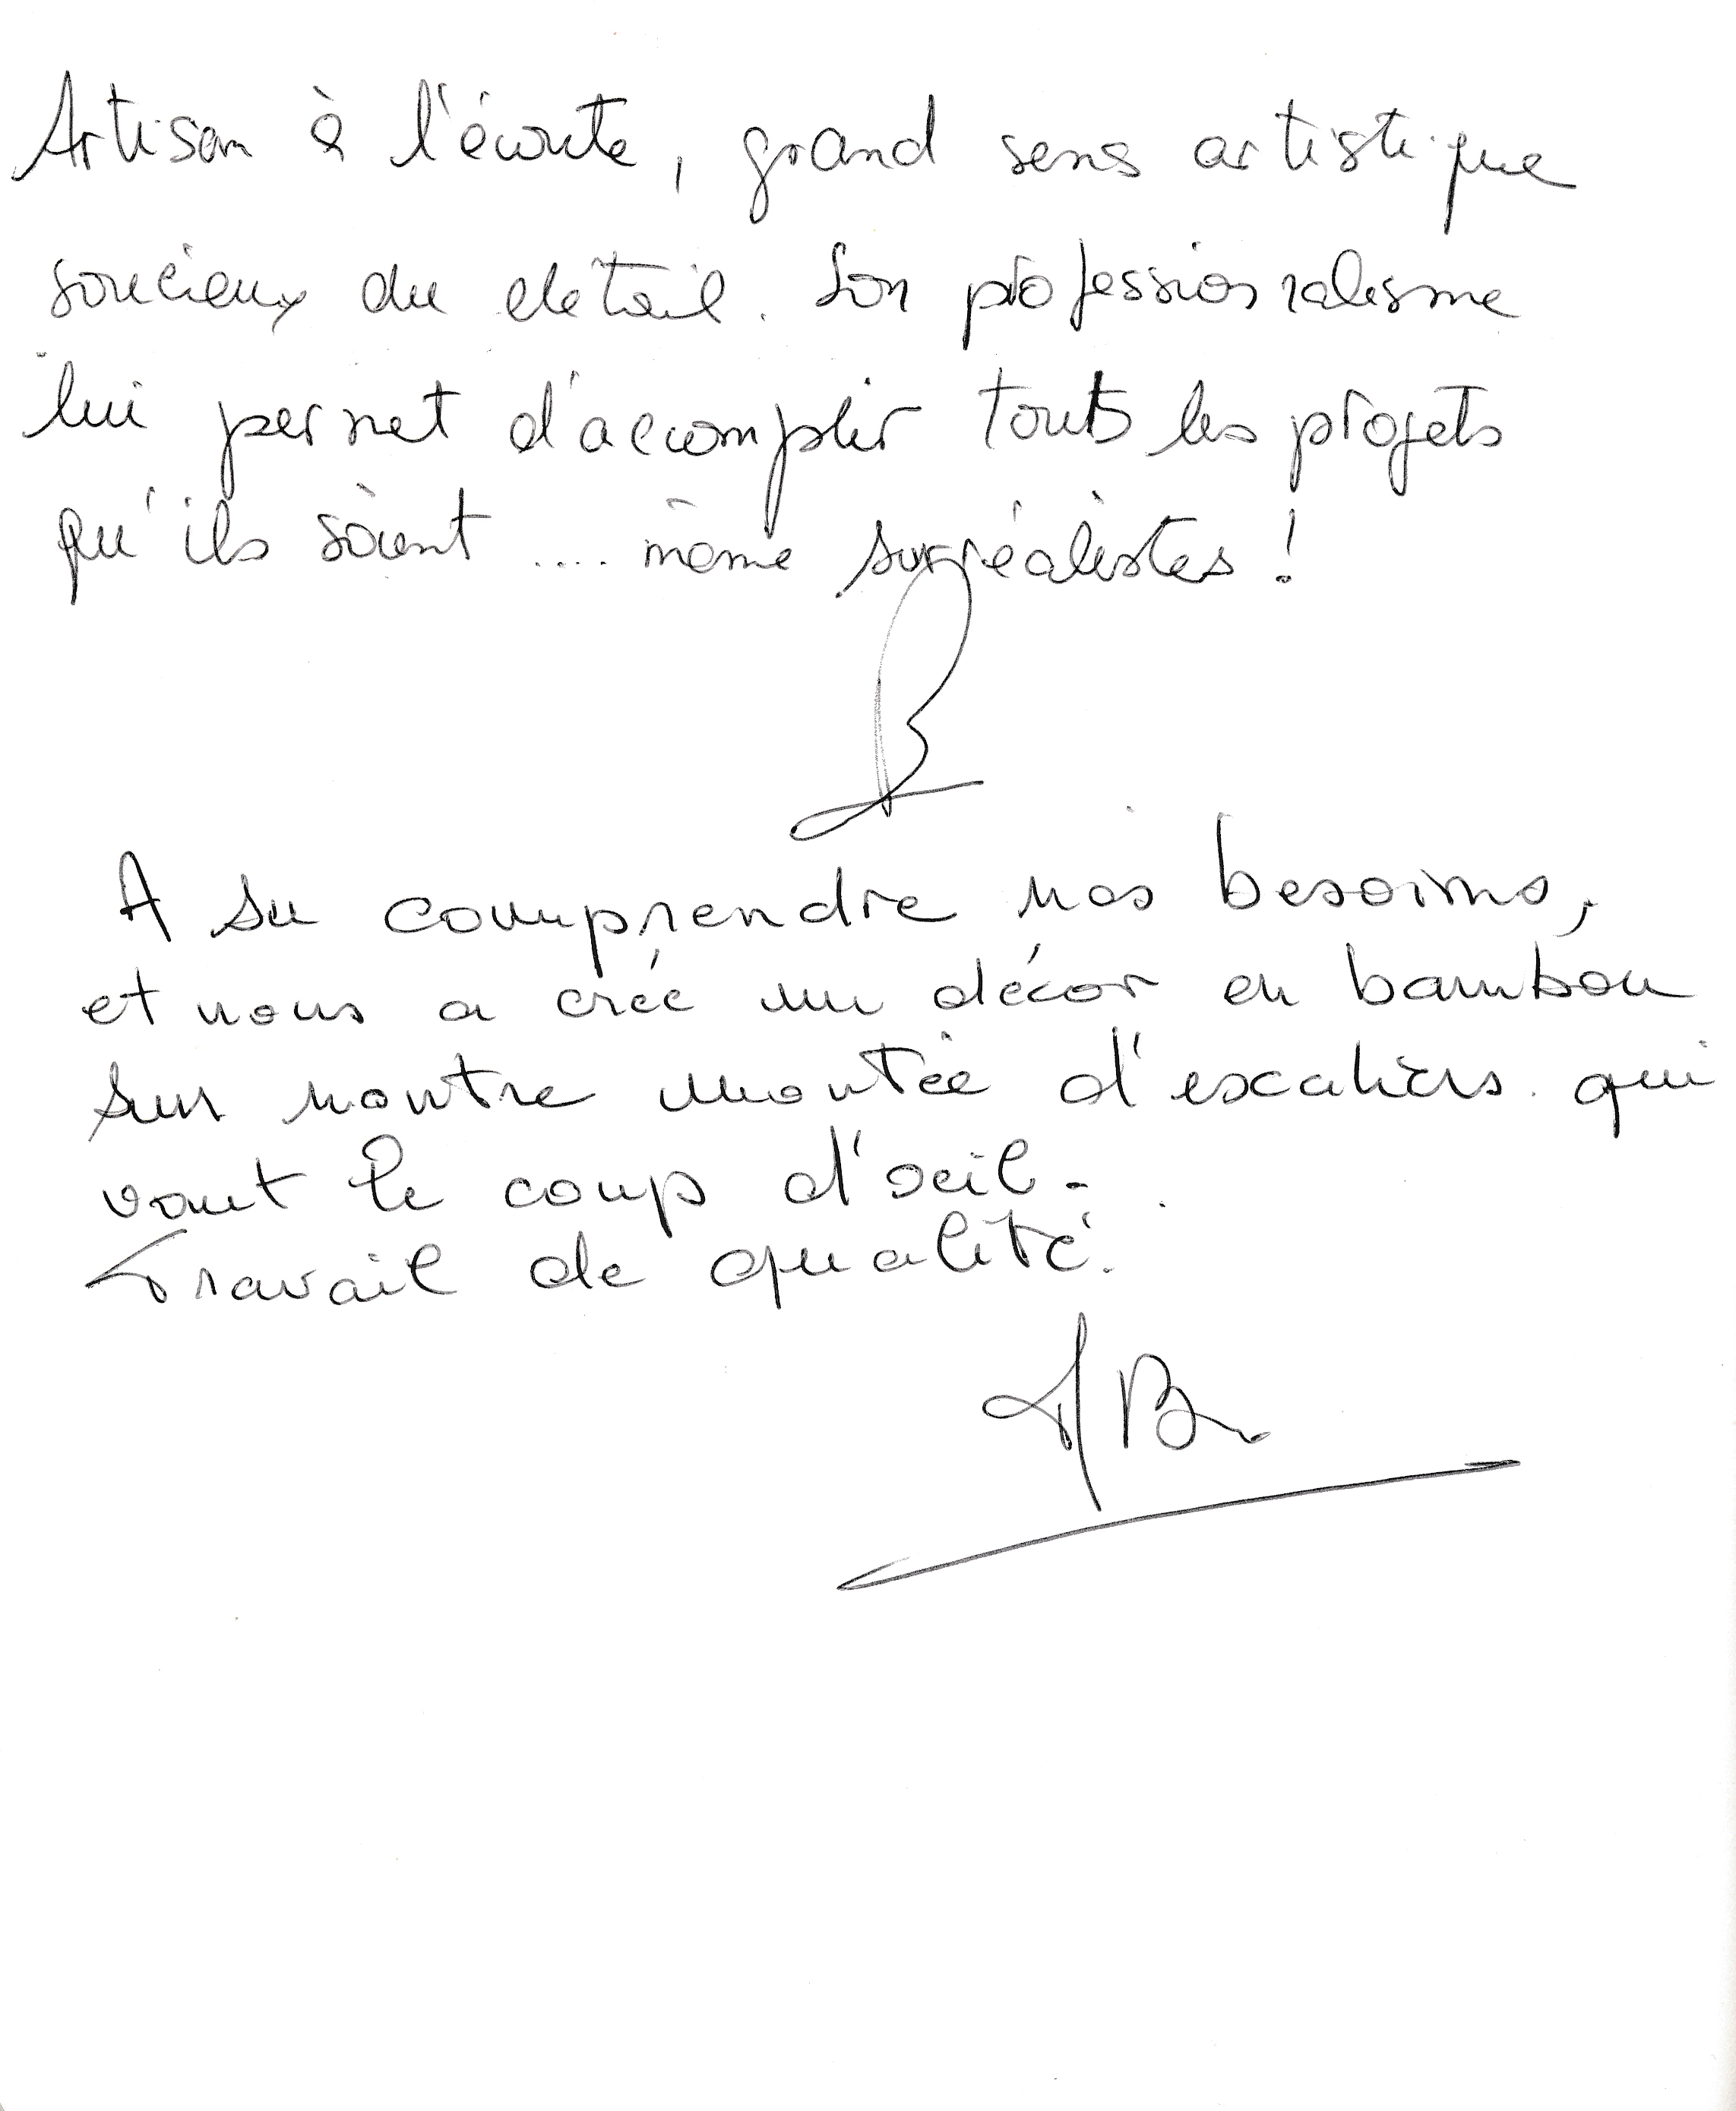 Artisan à l'écoute, grand sens artistique
soucieux du detail. Son professionalisme
lui permet d'accomplir touts les projets
qu'ils soient .... même surréalistes !
A su comprendre nos besoins,
et nous a créé un décor en bambou
sur nontre montée d'escaliers. qui
vaut le coup d'oeil.
Travail de qualité.